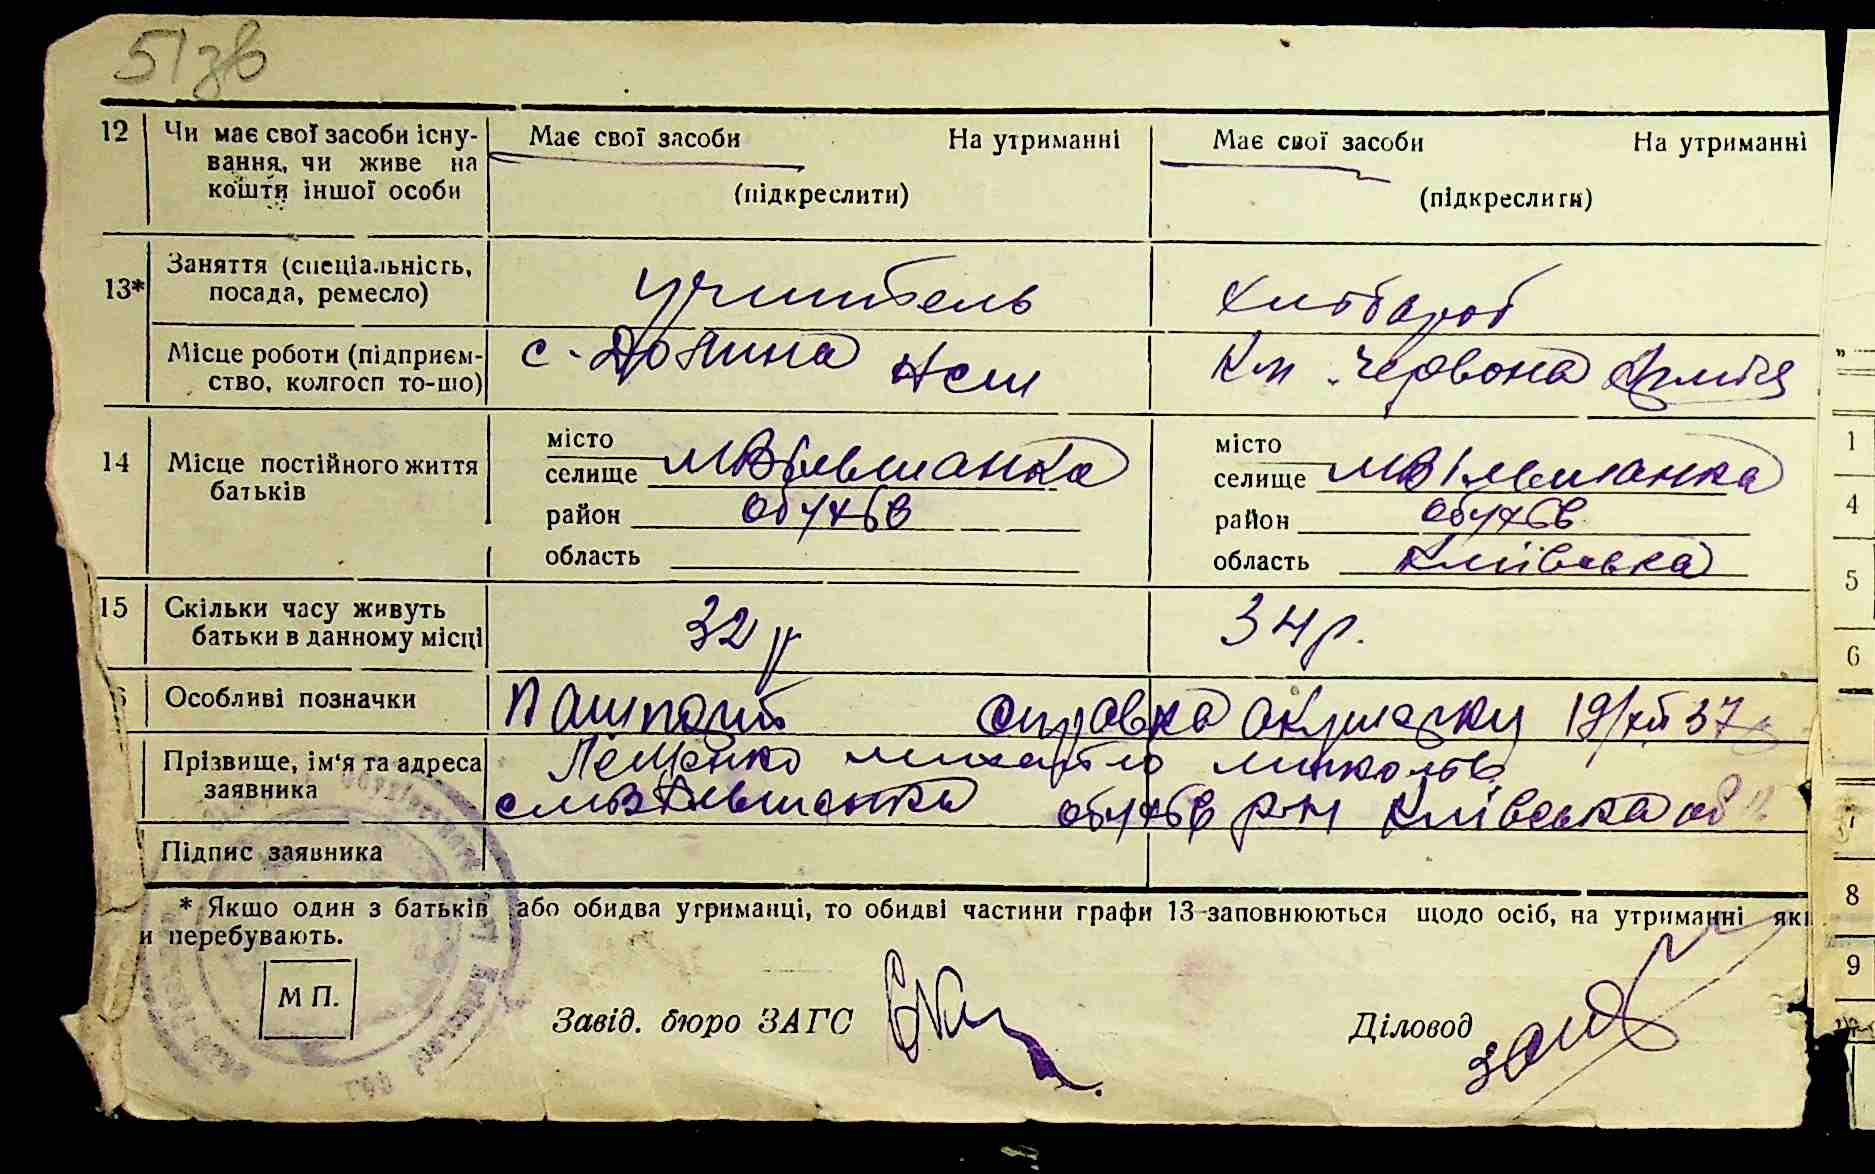 51зв
12 Чи має свої засоби існу-
вання, чи живе на
кошти іншої особи
Має свої засоби На утриманні
(підкреслити)
Має свої засоби На утриманні
(підкреслити)
13* Заняття (спеціальність,
посада, ремесло)
учитель
хлібороб
Місце роботи (підприєм-
ство, колгосп то-що)
с. Долина НСШ
Кл. Червона Армія
14 Місце постійного життя
батьків
місто
селище МВільшанка
район Обухів
область
місто
селище МВільшанка
район Обухів
область Київська
15 Скільки часу живуть
батьки в данному місці
32 р
34 р.
6 Особливі позначки
Пашпорт справка акушерки 19/XII 37
Прізвище, ім'я та адреса
заявника
Лещенко Михайло Миколов
с МВільшанка Обухів р-н Київська об
Підпис заявника
* Якщо один з батьків або обидва утриманці, то обидві частини графи 13 заповнюються щодо осіб, на утриманні які
и перебувають.
М П.
Завід. бюро ЗАГС
Діловод
1
4
5
6
7
8
9